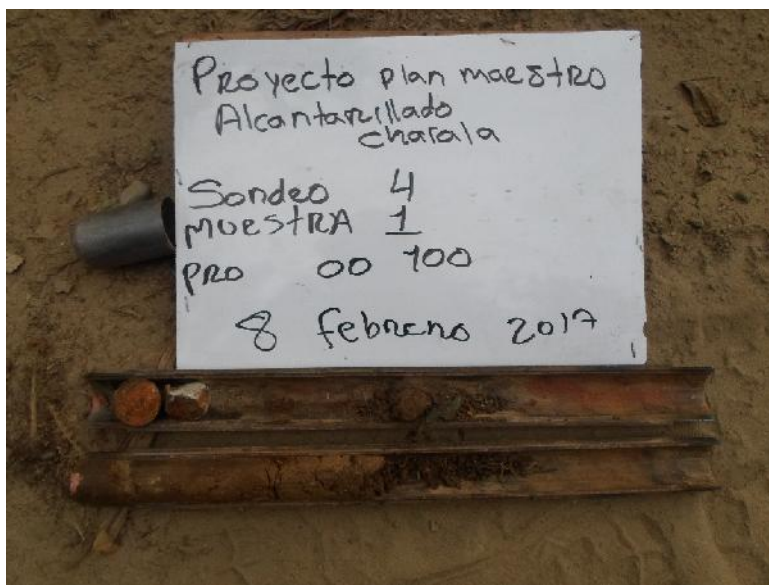 Proyecto plan maestro
Alcantarillado
charala
Sondeo 4
MUESTRA 1
PRO 00 100
8 febrero 2017